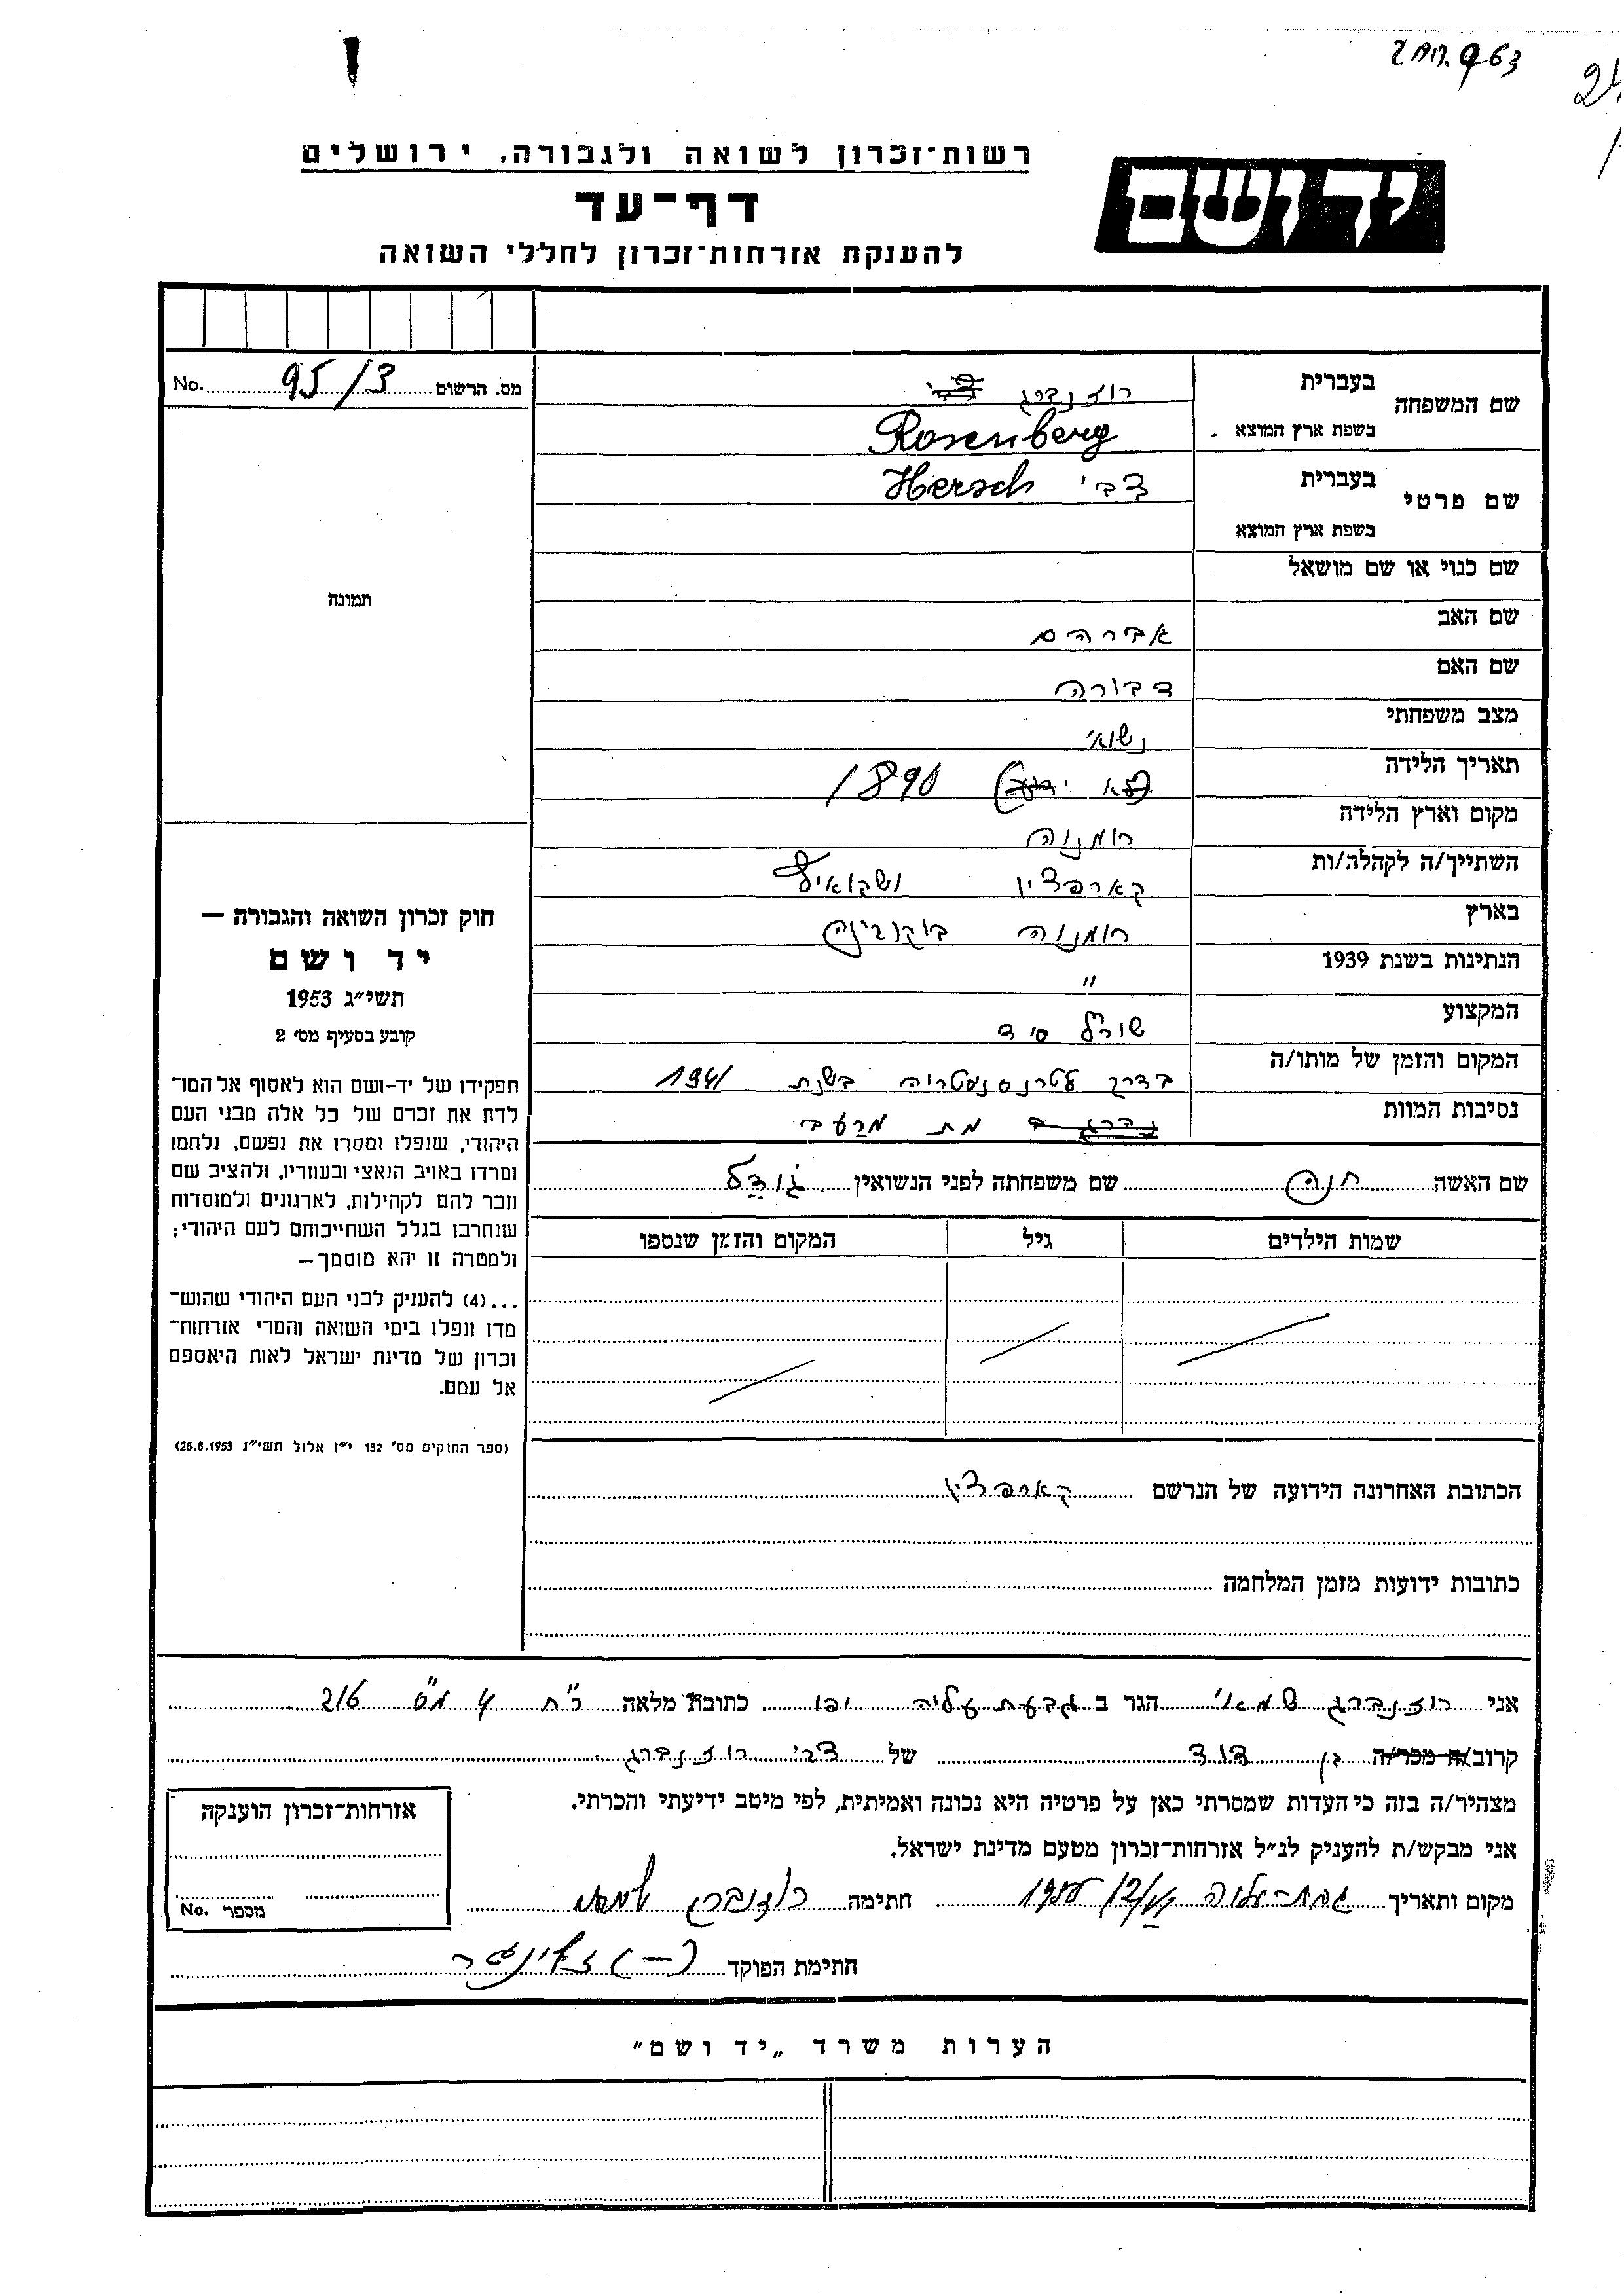 רשות־זכרון לשואה ולגבורה, ירושלים
יד ושם
דף־עד
להענקת אזרחות־זכרון לחללי השואה
מס. הרשום 95/3 No.
שם המשפחה בעברית רוזנברג
בשפת ארץ המוצא Rosenberg
שם פרטי בעברית צבי Hersch
בשפת ארץ המוצא
שם כנוי או שם מושאל
שם האב אברהם
שם האם דבורה
מצב משפחתי נשוי
תאריך הלידה 1890
מקום וארץ הלידה רומניה
השתייך/ה לקהלה/ות
בארץ רומניה בוקובינה
הנתינות בשנת 1939 "
המקצוע
המקום והזמן של מותו/ה בדרך לטרנסנסטריה בשנת 1941
נסיבות המוות מת מרעב
שם האשה חנה שם משפחתה לפני הנשואין
שמות הילדים גיל המקום והזמן שנספו
הכתובת האחרונה הידועה של הנרשם
כתובות ידועות מזמן המלחמה
תמונה
חוק זכרון השואה והגבורה —
יד ושם
תשי״ג 1953
קובע בסעיף מס׳ 2
תפקידו של יד-ושם הוא לאסוף אל המו־
לדת את זכרם של כל אלה מבני העם
היהודי, שנפלו ומסרו את נפשם, נלחמו
ומרדו באויב הנאצי ובעוזריו, ולהציב שם
וזכר להם לקהילות, לארגונים ולמוסדות
שנחרבו בגלל השתייכותם לעם היהודי;
ולמטרה זו יהא מוסמך—
...(4) להעניק לבני העם היהודי שהוש־
מדו ונפלו בימי השואה והמרי אזרחות־
זכרון של מדינת ישראל לאות היאספם
אל עמם.
(ספר החוקים מס׳ 132 י״ז אלול תשי״ג 28.8.1953)
אני רוזנברג שמאי הגר ב גבעת עליה יפו כתובת מלאה רח 4 מס 216
קרוב/ה מכר/ה בן דוד של צבי רוזנברג
מצהיר/ה בזה כי העדות שמסרתי כאן על פרטיה היא נכונה ואמיתית, לפי מיטב ידיעתי והכרתי.
אני מבקש/ת להעניק לנ״ל אזרחות־זכרון מטעם מדינת ישראל.
מקום ותאריך חתימה רוזנברג שמאי
חתימת הפוקד
אזרחות־זכרון הוענקה
מספר No.
הערות משרד „יד ושם״